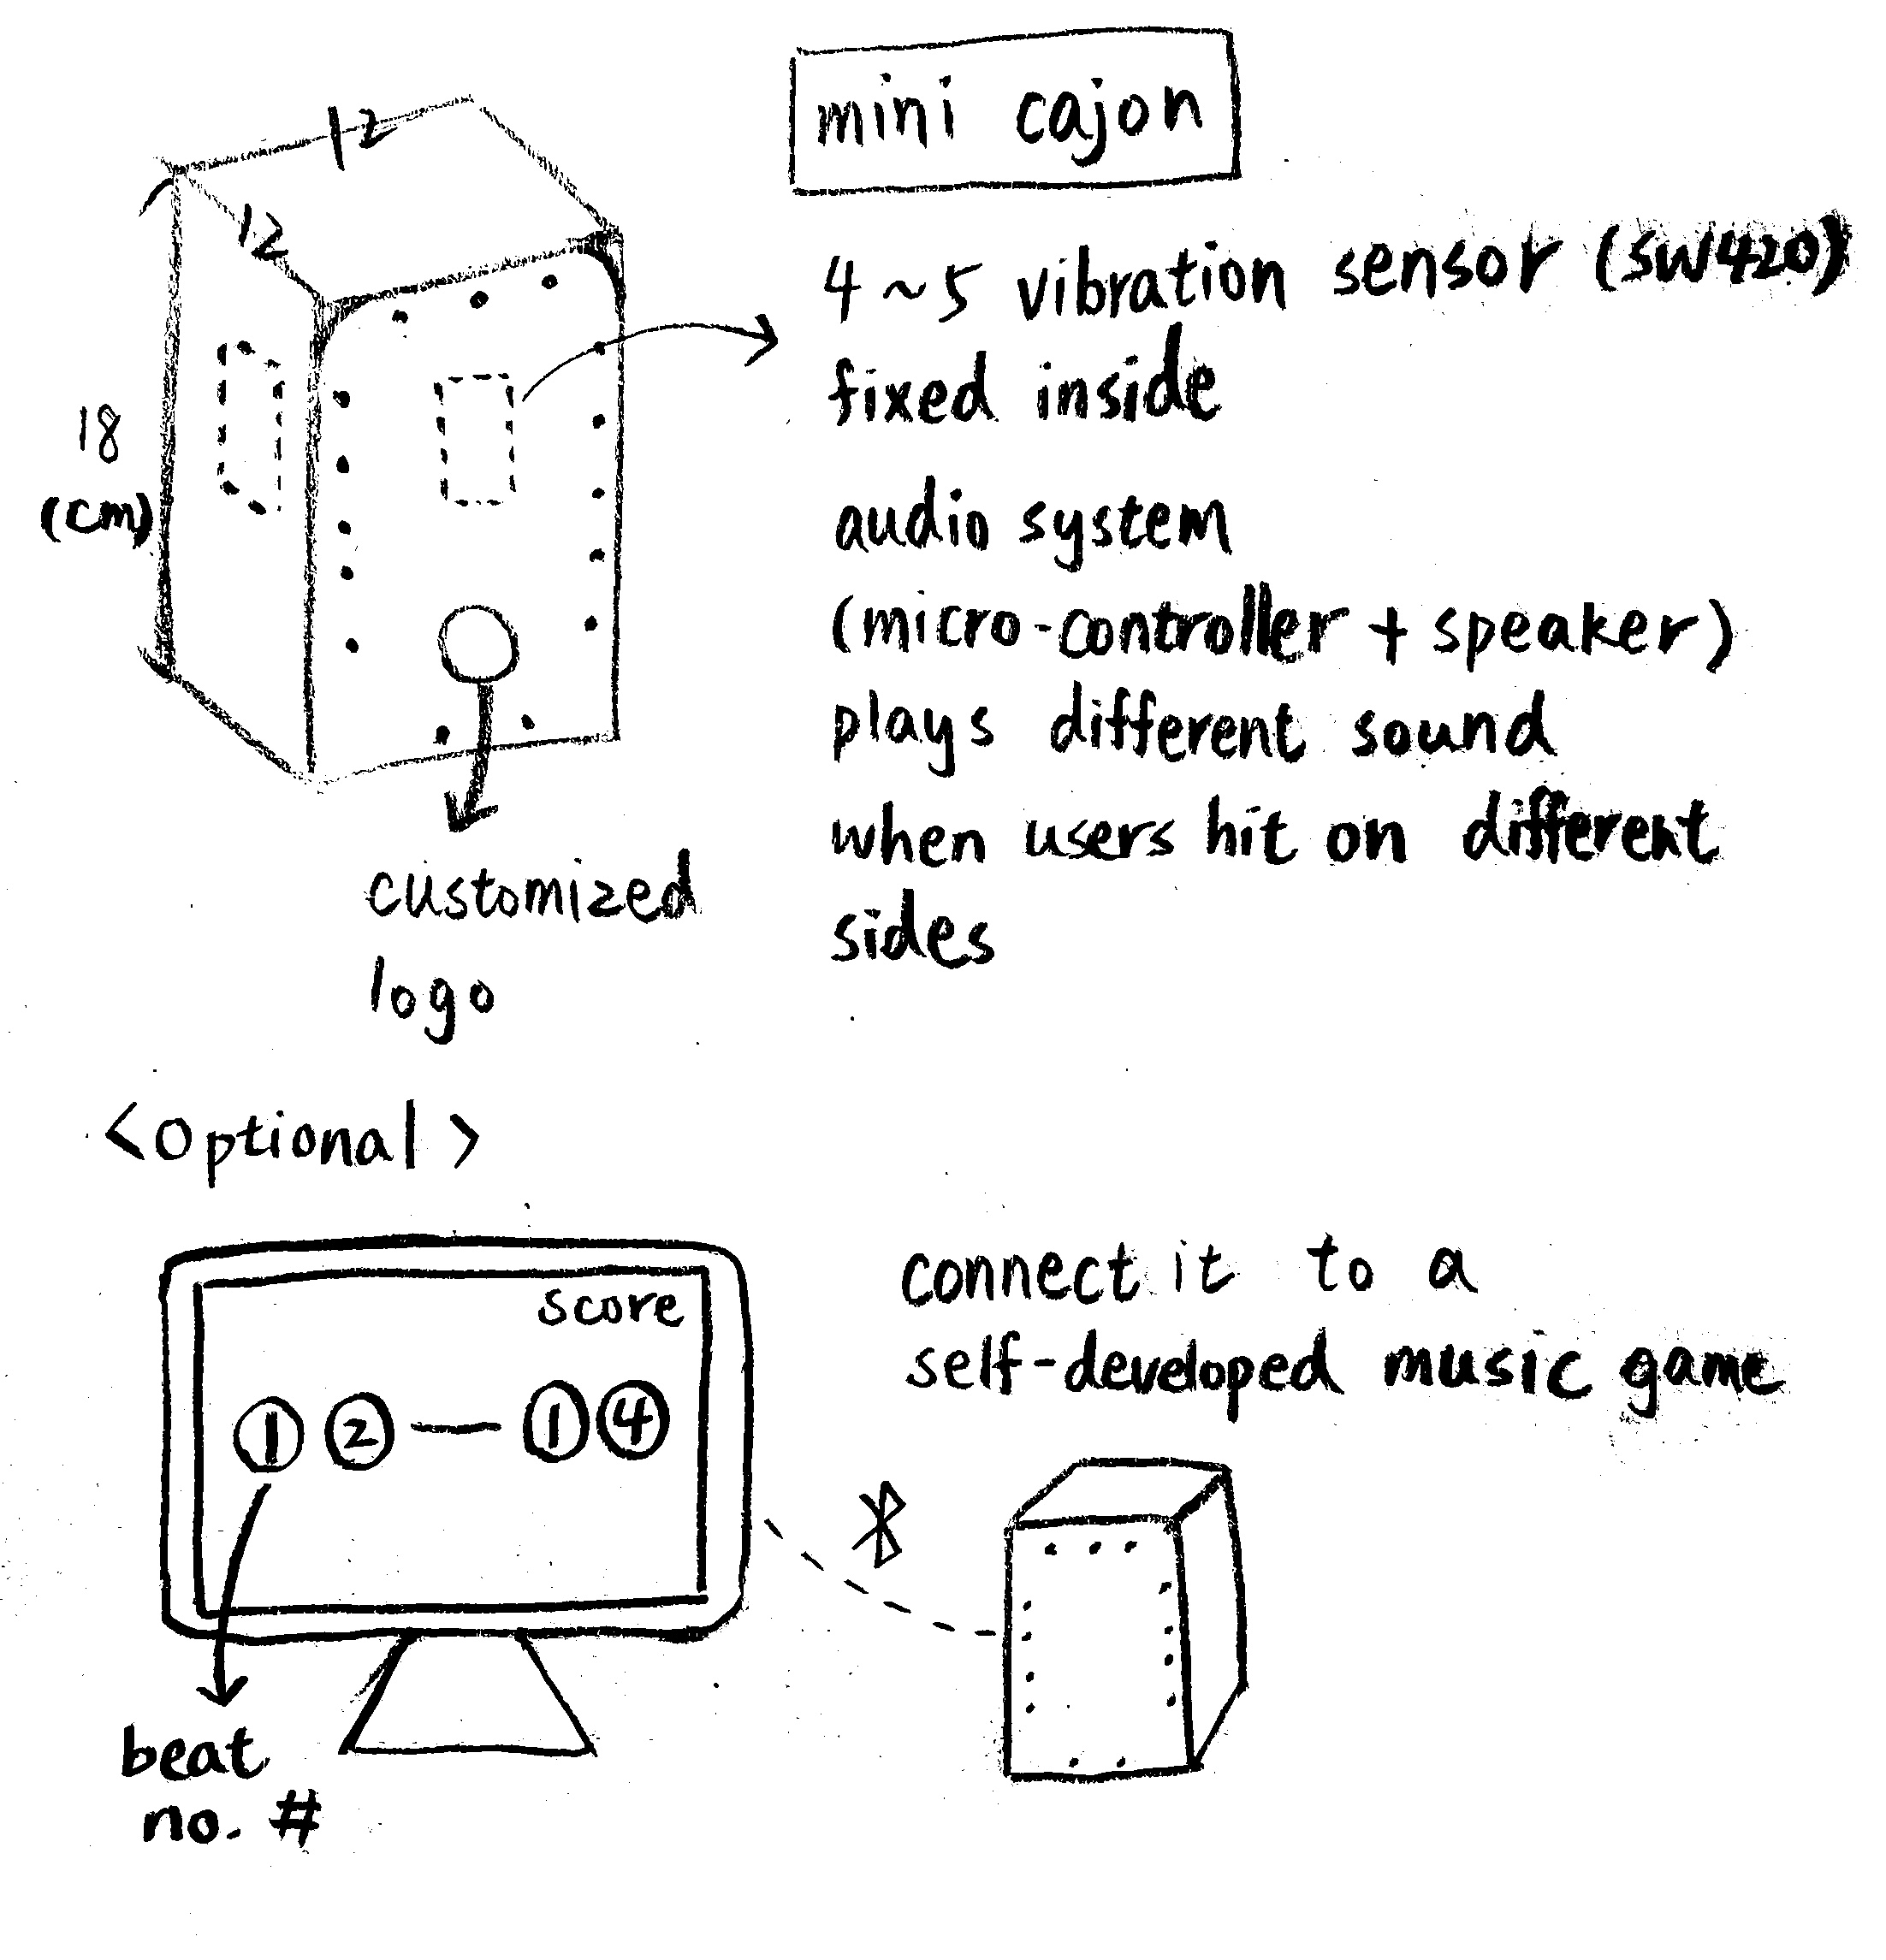 mini cajon
12
12
18
(cm)
4 ~ 5 vibration sensor (SW420)
fixed inside
audio system
(micro-controller + speaker)
plays different sound
when users hit on different
sides
customized
logo
<Optional>
score
1 2 — 1 4
beat
no. #
connect it to a
self-developed music game